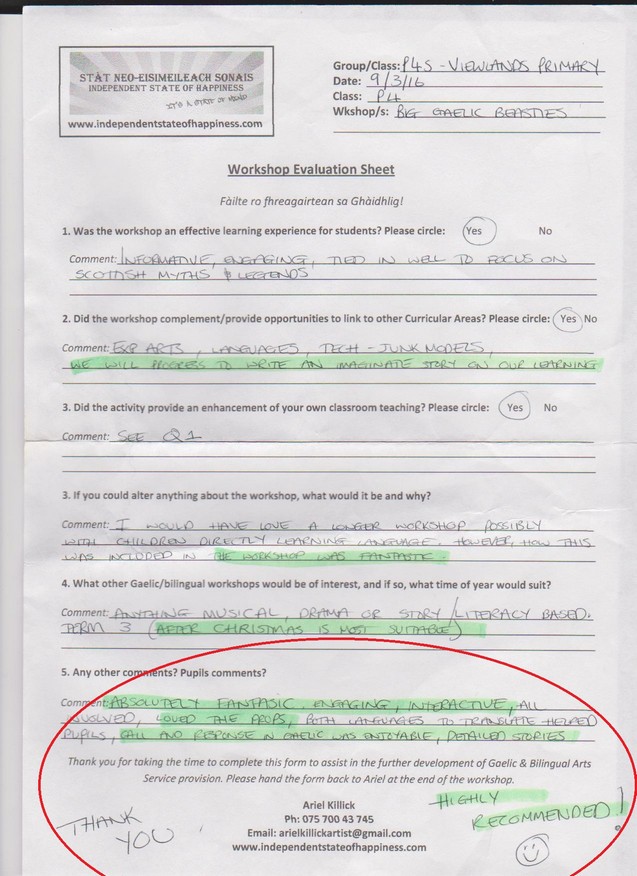 STÀT NEO-EISIMEILEACH SONAIS
INDEPENDENT STATE OF HAPPINESS
IT'S A STATE OF MIND
www.independentstateofhappiness.com
Group/Class: P4S - VIEWLANDS PRIMARY
Date: 9/3/16
Class: P4
Wkshop/s: BIG GAELIC BEASTIES
Workshop Evaluation Sheet
Fàilte ro fhreagairtean sa Ghàidhlig!
1. Was the workshop an effective learning experience for students? Please circle: Yes No
Comment: INFORMATIVE, ENGAGING, TIED IN WELL TO FOCUS ON
SCOTTISH MYTHS & LEGENDS
2. Did the workshop complement/provide opportunities to link to other Curricular Areas? Please circle: Yes No
Comment: EXP ARTS, LANGUAGES, TECH - JUNK MODELS,
WE WILL PROGRESS TO WRITE AN IMAGINATE STORY ON OUR LEARNING
3. Did the activity provide an enhancement of your own classroom teaching? Please circle: Yes No
Comment: SEE Q1
3. If you could alter anything about the workshop, what would it be and why?
Comment: I WOULD HAVE LOVE A LONGER WORKSHOP POSSIBLY
WITH CHILDREN DIRECTLY LEARNING LANGUAGE. HOWEVER, HOW THIS
WAS INCLUDED IN THE WORKSHOP WAS FANTASTIC.
4. What other Gaelic/bilingual workshops would be of interest, and if so, what time of year would suit?
Comment: ANYTHING MUSICAL, DRAMA OR STORY/LITERACY BASED.
TERM 3 (AFTER CHRISTMAS IS MOST SUITABLE)
5. Any other comments? Pupils comments?
Comment: ABSOLUTELY FANTASIC. ENGAGING, INTERACTIVE, ALL
INVOLVED, LOVED THE PROPS, BOTH LANGUAGES TO TRANSLATE HELPED
PUPILS, CALL AND REPONSE IN GAELIC WAS ENJOYABLE, DETAILED STORIES
Thank you for taking the time to complete this form to assist in the further development of Gaelic & Bilingual Arts
Service provision. Please hand the form back to Ariel at the end of the workshop.
Ariel Killick
Ph: 075 700 43 745
Email: arielkillickartist@gmail.com
www.independentstateofhappiness.com
THANK
YOU
HIGHLY
RECOMMENDED!